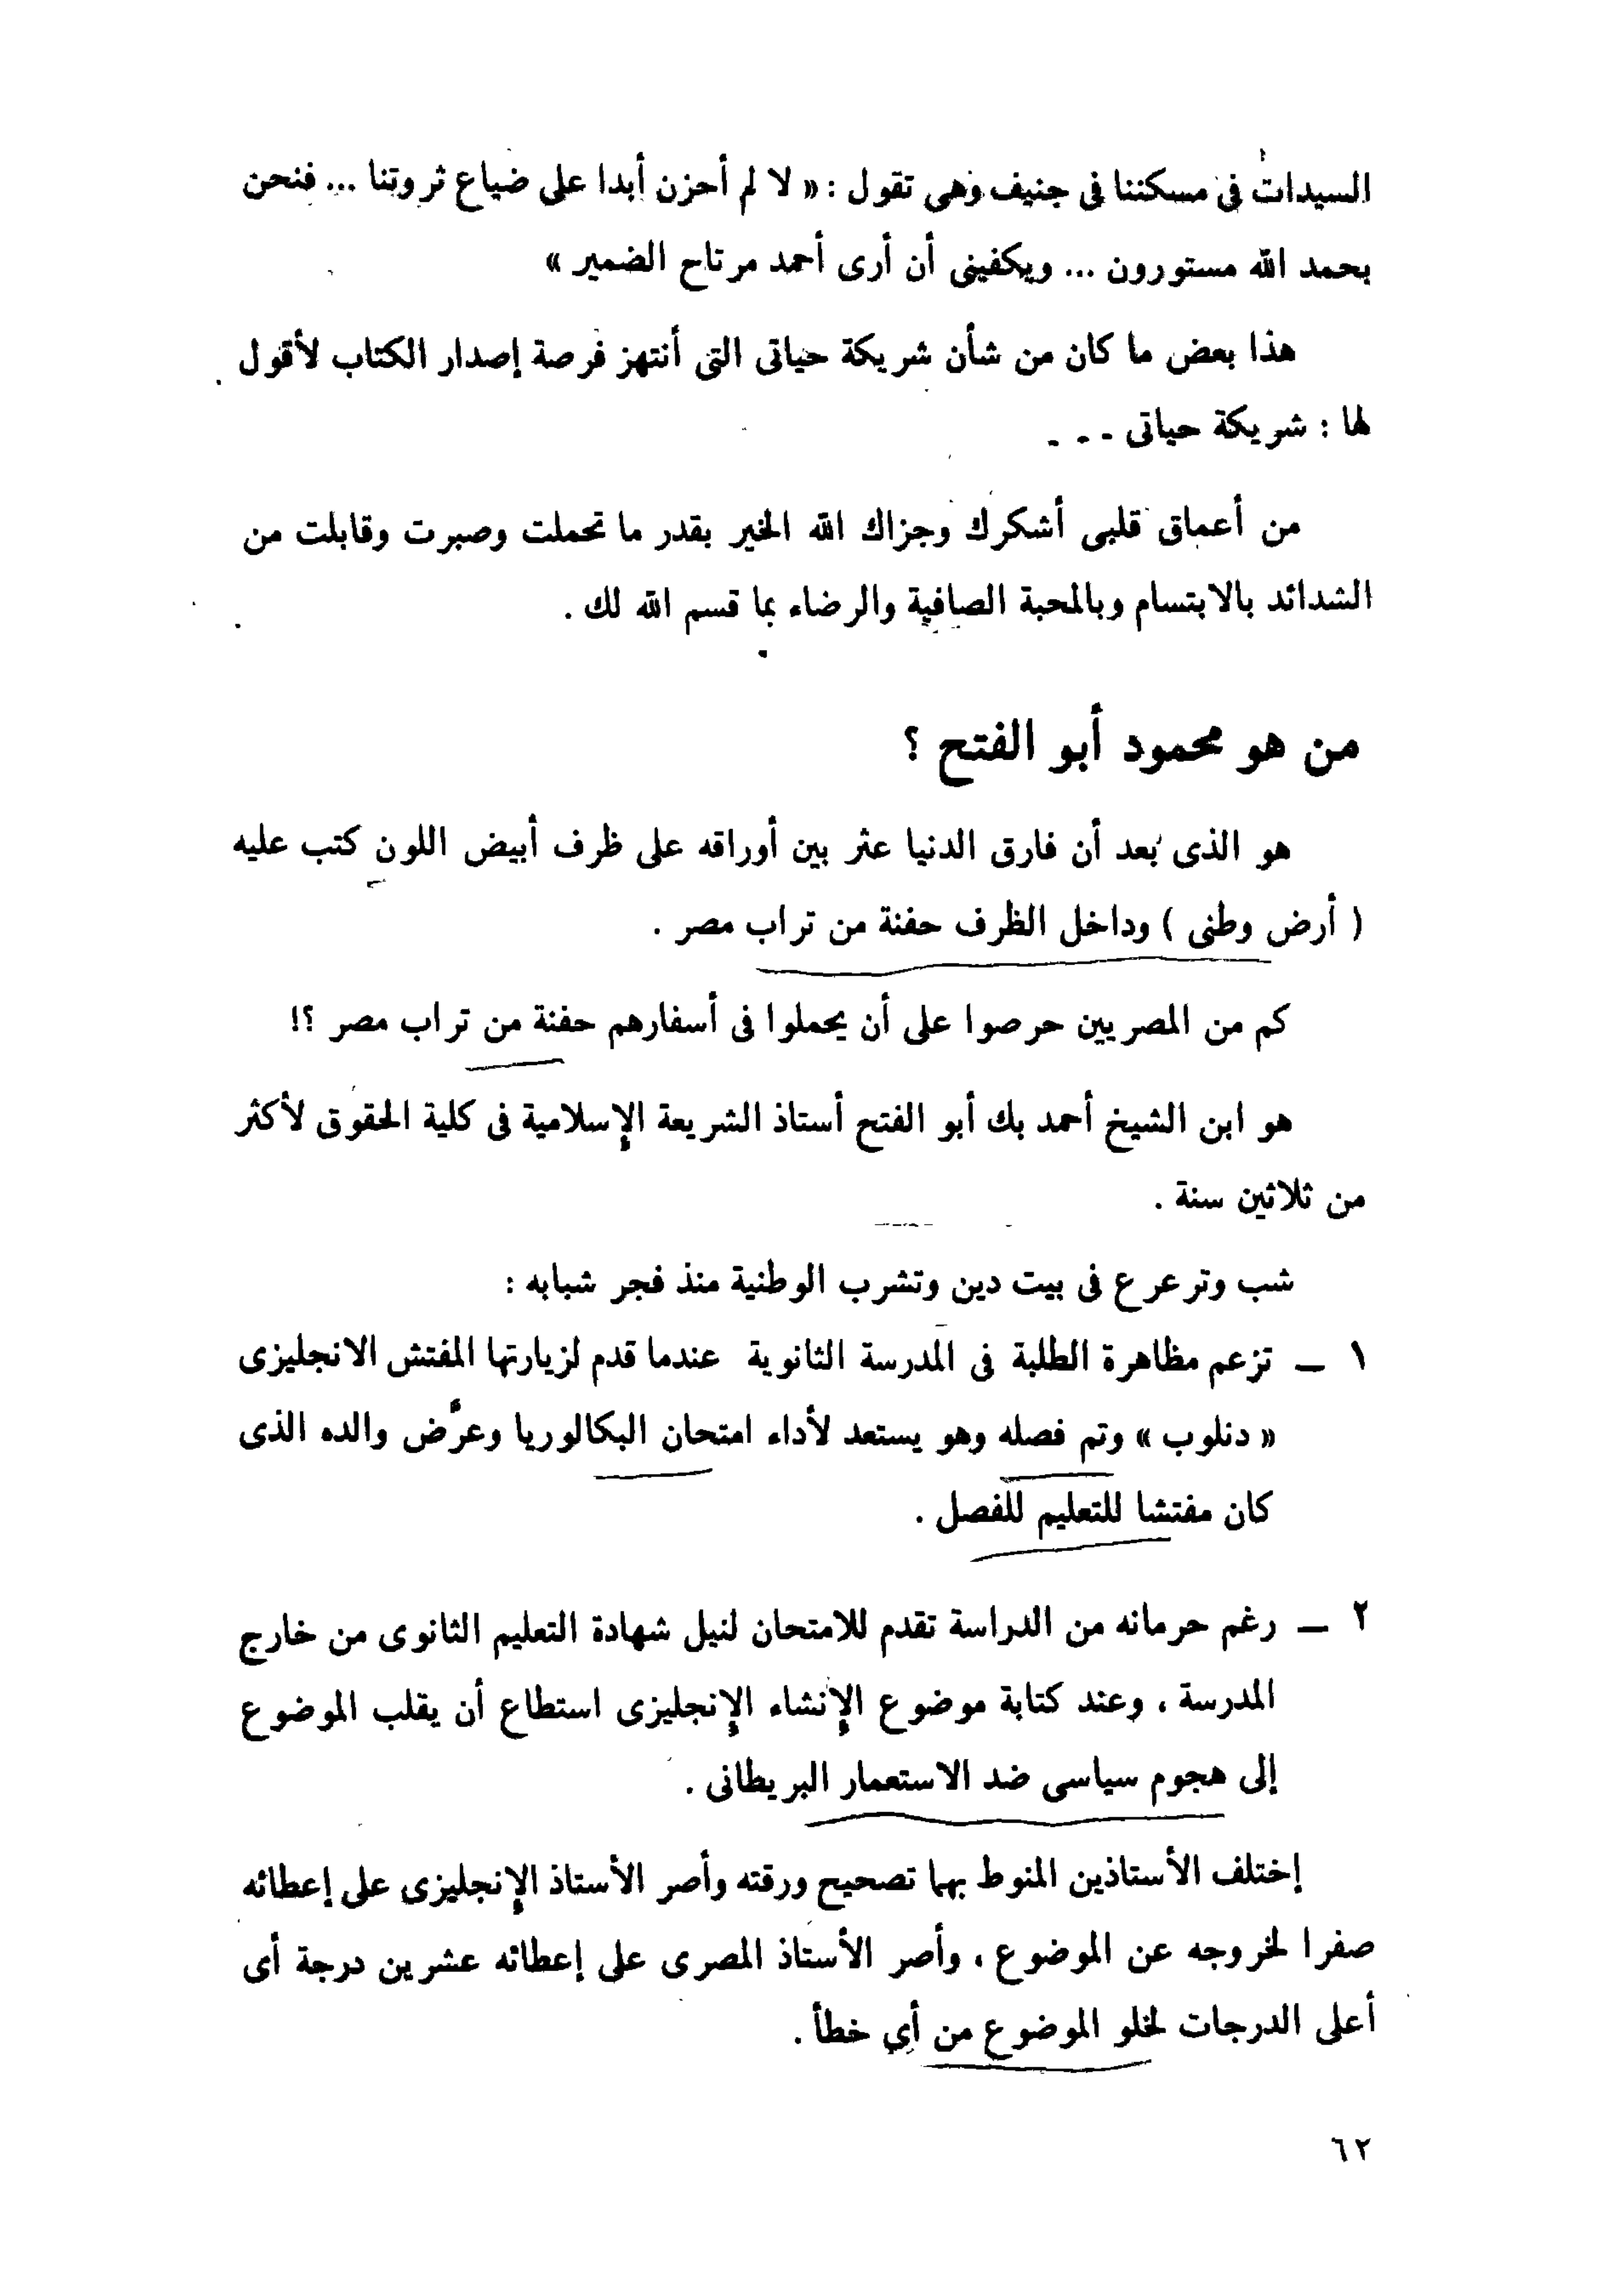 السيدات فى مسكننا فى جنيف وهى تقول : « لا لم أحزن أبدا على ضياع ثروتنا ... فنحن
بحمد الله مستورون ... ويكفينى أن أرى أحمد مرتاح الضمير »
هذا بعض ما كان من شأن شريكة حياتى التى أنتهز فرصة إصدار الكتاب لأقول
لها : شريكة حياتى - - -
من أعماق قلبى أشكرك وجزاك الله الخير بقدر ما تحملت وصبرت وقابلت من
الشدائد بالابتسام وبالمحبة الصافية والرضاء بما قسم الله لك .
من هو محمود أبو الفتح ؟
هو الذى بعد أن فارق الدنيا عثر بين أوراقه على ظرف أبيض اللون كتب عليه
( أرض وطنى ) وداخل الظرف حفنة من تراب مصر .
كم من المصريين حرصوا على أن يحملوا فى أسفارهم حفنة من تراب مصر ؟!
هو ابن الشيخ أحمد بك أبو الفتح أستاذ الشريعة الإسلامية فى كلية الحقوق لأكثر
من ثلاثين سنة .
شب وترعرع فى بيت دين وتشرب الوطنية منذ فجر شبابه :
١ ـ تزعم مظاهرة الطلبة فى المدرسة الثانوية عندما قدم لزيارتها المفتش الانجليزى
« دنلوب » وتم فصله وهو يستعد لأداء امتحان البكالوريا وعرَّض والده الذى
كان مفتشا للتعليم للفصل .
٢ ـ رغم حرمانه من الدراسة تقدم للامتحان لنيل شهادة التعليم الثانوى من خارج
المدرسة ، وعند كتابة موضوع الإنشاء الإنجليزى استطاع أن يقلب الموضوع
إلى هجوم سياسى ضد الاستعمار البريطانى .
إختلف الأستاذين المنوط بهما تصحيح ورقته وأصر الأستاذ الإنجليزى على إعطائه
صفرا لخروجه عن الموضوع ، وأصر الأستاذ المصرى على إعطائه عشرين درجة أى
أعلى الدرجات لخلو الموضوع من أى خطأ .
٦٢